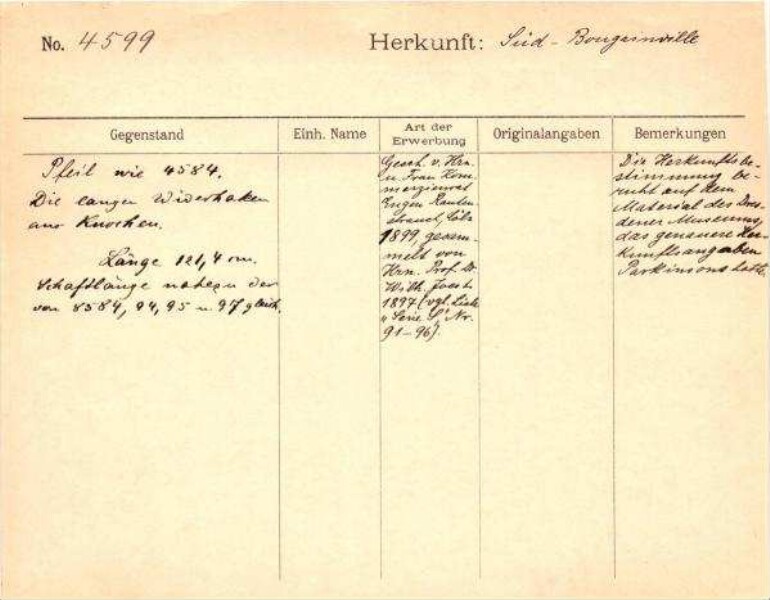 No. 4599 Herkunft: Süd-Bougainville
Gegenstand Einh. Name Art der Erwerbung Originalangaben Bemerkungen
Pfeil wie 4584.
Die langen Widerhaken
aus Knochen.
Länge 121,4 cm.
Schaftlänge nahezu der
von 8584, 94, 95 u. 97 gleich.
Gesch. v. Hrn.
u. Frau Kom-
merzienrat
Eugen Rauten-
strauch, Cöln
1899, gesam-
melt von
Hrn. Prof. Dr.
Wilh. Joest
1897 (vgl. Liste
"Serie S", Nr.
91-96).
Die Herkunftsbe-
stimmung be-
ruht auf dem
Material des Dres-
dener Museums,
das genauere Her-
kunftsangaben
Parkinsons hatte.